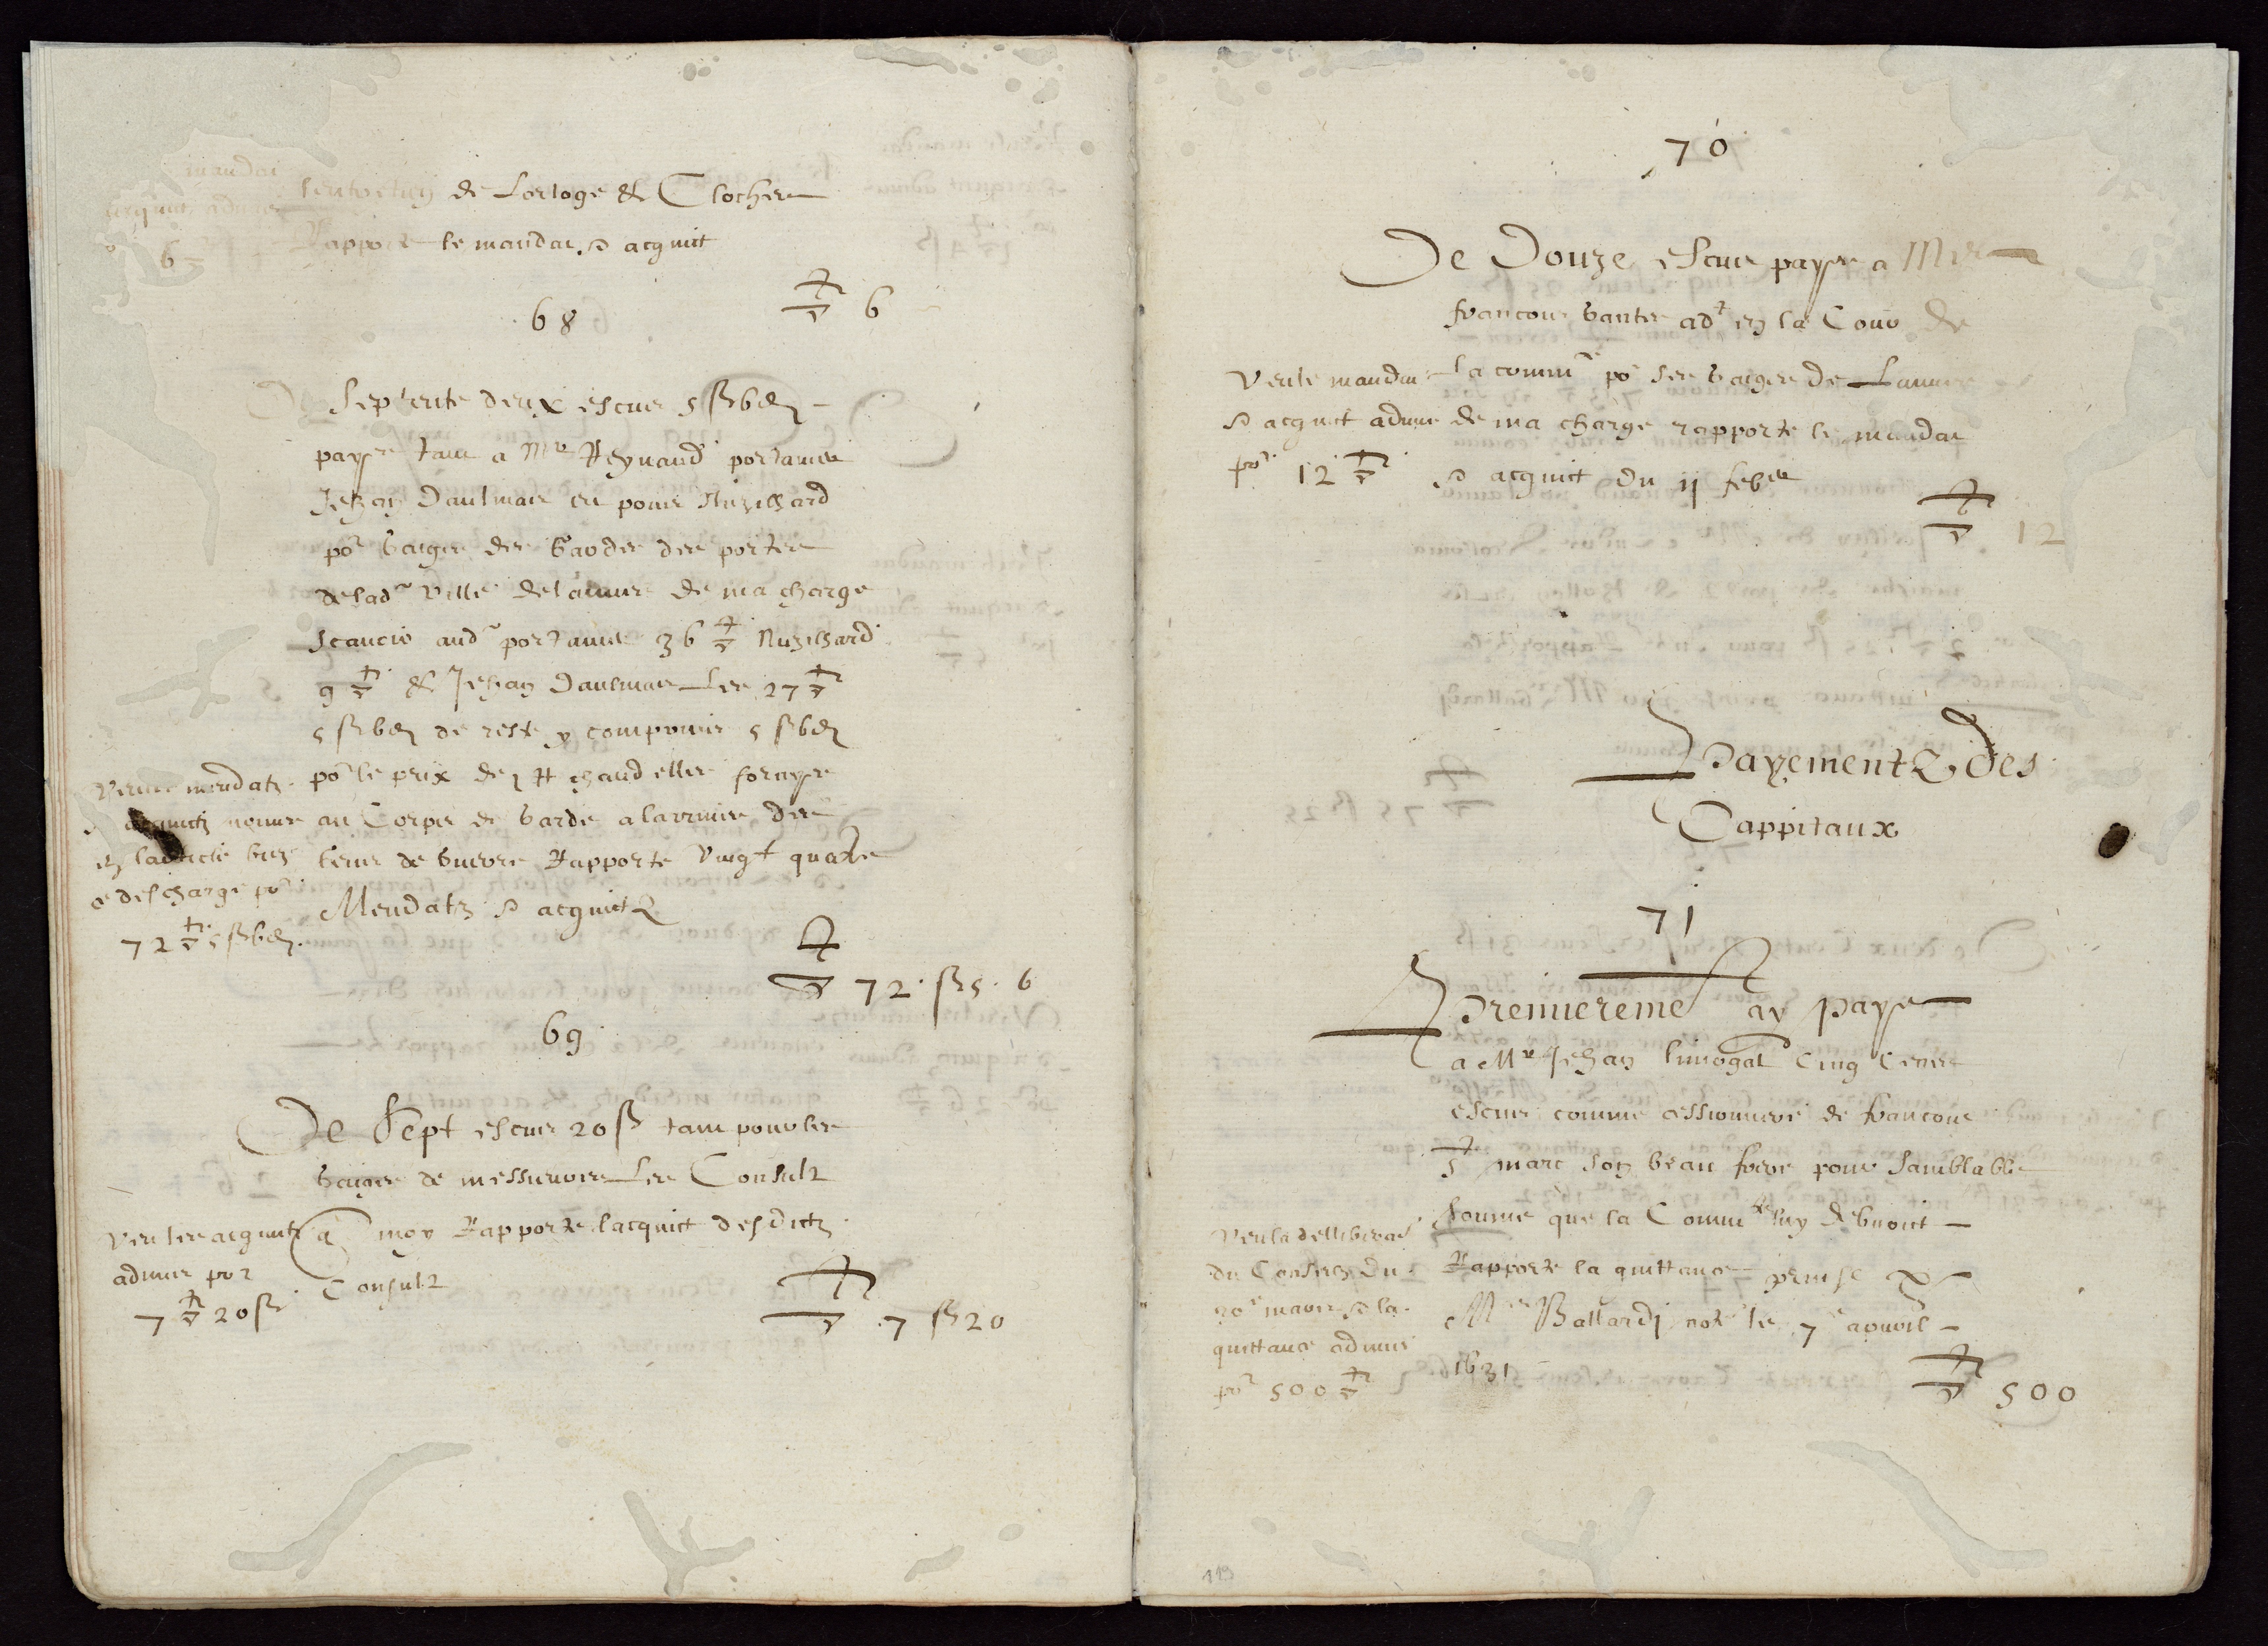 mandat
acquit admis
6
lentretien de Lorloge & Clocher
Rapporte le mandat & acquit
6
68
De Septente deux escus 5 ß 6 d
payes tant a Mr Reynaud portanier
Jehan Daulmas et pons Nuzilhard
por gaiges des gardes des portes
de lad. ville de lannee de ma charge
scavoir aud. portanier 36 Nuzilhard
9 & Jehan Daulmas Les 27
5 ß 6 d de reste y compris 5 ß 6 d
por le prix de chandelles fornyes
au Corps de garde a larrivee des
gens de guerre Rapporte vingt quatre
Mendatz & acquitz
Veu les mendatz
& acquitz
en larticle bien
e descharge por
72 5 ß 6 d
72 ß 5 6
69
De Sept escus 20 ß tant pour les
gaiges de messieurs Les Consulz
a moy Rapporte lacquit desdictz
Consulz
Veu les acquitz
admis por
7 20 ß
7 ß 20
70
De Douze escus payes a Mre
francois gantes adt en la Cour de
la commte por ses gaiges de Lannee
de ma charge rapporte le mandat
& acquit du 11 febvr
Veu le mandat
& acquit admis
por 12
12
Payementz des
Cappitaux
71
Premieremet ay paye
a Mr Jehan limogat Cinq Cens
escus comme cessionnere de francois
St marc son beau frere pour Samblable
somme que la Commte luy debvoit
Rapporte la quittance prinse
Mre Ballardj note le 7e apvril
1631
Veu la delliberat
du Conseil du
20e mars & la
quittance admis
por 500
500
119